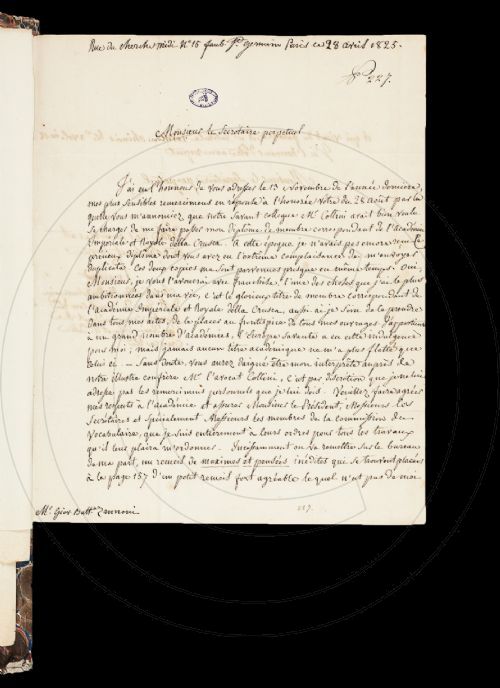 Rue du cherche midi N° 15 faub. St. germain Paris ce 28 avril 1825.
227.
Monsieur le Secrétaire perpetuel
J'ai eu l'honneur de vous adresser le 13 Novembre de l'année dernière,
mes plus sensibles remerciemens en réponse à l'honorée Votre du 26 Aout par la
quelle vous m'annonciez, que notre Savant collegue Mr. Collini avait bien voulu
se charger de me faire passer mon diplome de membre correspondant de l'Académie
Impériale et Royale della Crusca. A cette époque je n'avais pas encore reçu Ce
précieux diplome dont vous avez eu l'extrême complaisance de m'envoyer
duplicata. Ces deux copies me sont parvenues presque en même temps. Oui,
Monsieur, je vous l'avouerai avec franchise, l'une des choses que j'ai le plus
ambitionnées dans ma vie, c'est le glorieux titre de membre correspondant de
l'académie Impériale et Royale della Crusca, aussi ai-je soin de le prendre
dans tous mes actes, de le placer au frontispice de tous mes ouvrages. J'appartiens
à un grand nombre d'académies, l'Europe Savante a eu cette indulgence
pour moi; mais jamais aucun titre académique ne m'a plus flatté que
celui ci — Sans doute, vous aurez daigné être mon interprète auprès de
notre illustre confrère Mr. l'avocat Collini, c'est par discrétion que je ne lui
adresse pas les remerciments personnels que je lui dois. Veuillez faire agréer
mes respects à l'académie et assurer Monsieur le Président, Messieurs les
Secrétaires et Spécialement Messieurs les membres de la commission du
Vocabulaire, que je suis entièrement à leurs ordres pour tous les travaux
qu'il leur plaira m'ordonner. Incessamment on va remettre sur le bureau
de ma part, un recueil de maximes et pensées, inédites qui se trouvent placées
à la page 157 d'un petit recueil fort agréable le quel n'est pas de moi
Mr. Giov. Batta. Zannoni